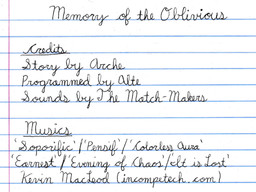 Memory of the Oblivious
Credits
Story by Arche
Programmed by Alte
Sounds by The Match-Makers
Musics
'Soporific'/'Pensif'/'Colorless Aura'
'Earnest'/'Evening of Chaos'/'It is Lost'
Kevin MacLeod (incompetech.com)